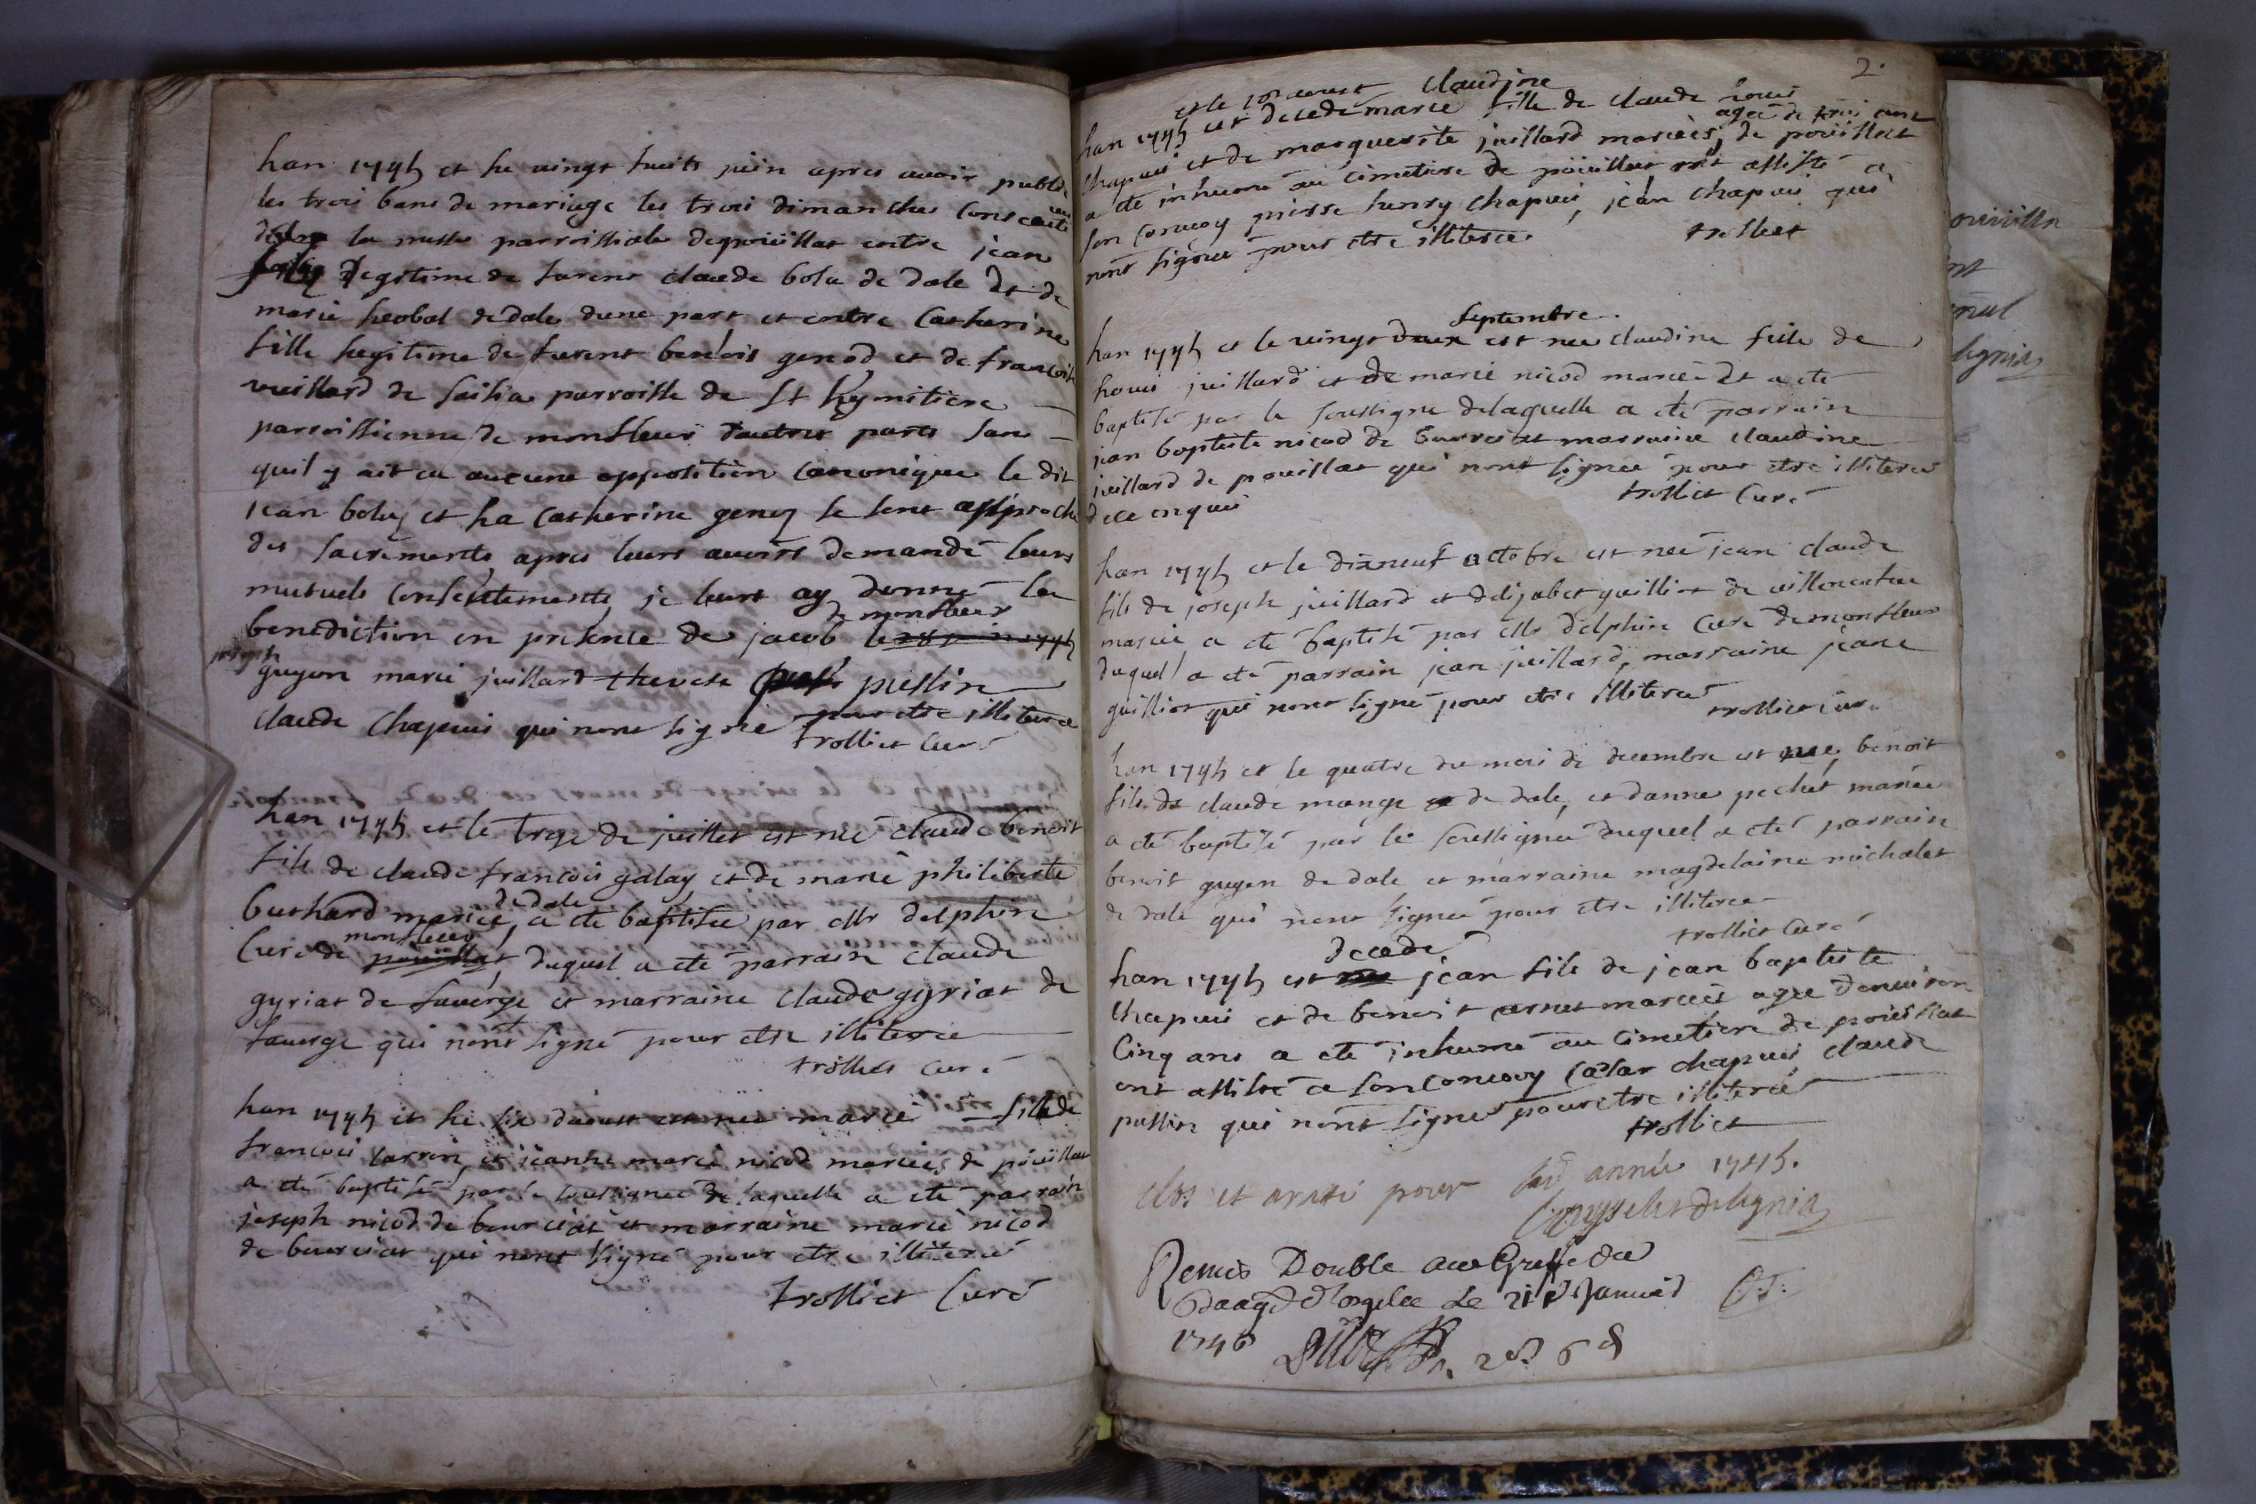 han 1745 et he vingt huits juin apres avoir publié
les trois bans de mariage les trois dimanches
la messe parroissiale depouillat entre jean
legitime de furent claude bolu de dale et de
marie de dale dune part et entre Catherine
fille hegitime de furent benois genod et de francoise
vuillard de failia parroisse de st hymitiere
parroissienne de monfleur dautres parts sans
quil y ait eu aucune opposition canonique le dit
jean boluz et ha Catherine genoz se sont approché
des sacrements apres leurs avoirs demandé leurs
mutuels consentements je leurs ay donné la
de monfleur
benediction en presence de jacob
joseph
guyon marie juillard therese puslin
claude Chapuis qui nont signe pour etre illiterée
trolliet Curé
han 1745 et le treze de juillet est neé claude benoit
fils de claude francois galay et de marie philiberte
de dale
buthard mariés, a ete baptisee par Mr delphin
monfleur
Curé de pouillat, duquel a ete parrain claude
gyriat de faverge et marraine claude gyriat de
faverge qui nont signé pour etre illiterée
trolliet curé
han 1745 et he six daoust est neé marie fille de
francois carrin et jeanne marie nicod mariés de pouillat
a eté baptisé par le soussigneé de laquelle a eté parrain
joseph nicod de bourciat et marraine marie nicod
de bourciat qui nont signé pour etre illiteré
trolliet Curé
2.
et le aoust claudine
han 1745 est decede marie fille de claude
ageé de trois ans
Chapuis et de marguerite juillard mariés, de pouillat
a ete inhumé au cimetiere de pouillat ont assisté a
son convoy pierre henry chapuis, jean chapuis qui
nont signeé pour etre illiterée
trolliet
septembre
han 1745 et le vingt deux est neé claudine fille de
houis juillard et de marie nicod marieé et a eté
baptisé par le soussigné delaquelle a eté parrain
jean baptiste nicod de bourciat marraine claudine
juillard de pouillat qui nont signeé pour etre illiteré
de ce enquis
trolliet Curé
han 1745 et le dixneuf octobre est neé jean claude
fils de joseph juillard et delizabet guilliot de
mariée a eté baptisé par Mr delphin Curé de monfleur
duquel a eté parrain jean juillard, marraine jeane
guilliot qui nont signé pour etre illiteré
trolliet curé
han 1745 et le quatre du mois de decembre est neé benoit
fils de claude mange de dale, et danne pechet mariée
a eté baptisé par le soussigneé duquel a eté parrain
benoit guyon de dale et marraine magdelaine michalet
de dale qui nont signeé pour etre illiterée
trolliet Curé
decedé
han 1745 est jean fils de jean baptiste
Chapuis et de benoit mariés ageé denviron
Cinq ans a eté inhumé au cimetiere de pouillat
ont assisté a son convoy Cesar chapuis, claude
puslin qui nont signé pour etre illiteré
trolliet
clos et areté pour année 1745.
Remis Double au Greffe du
le 21e Janvier
1746